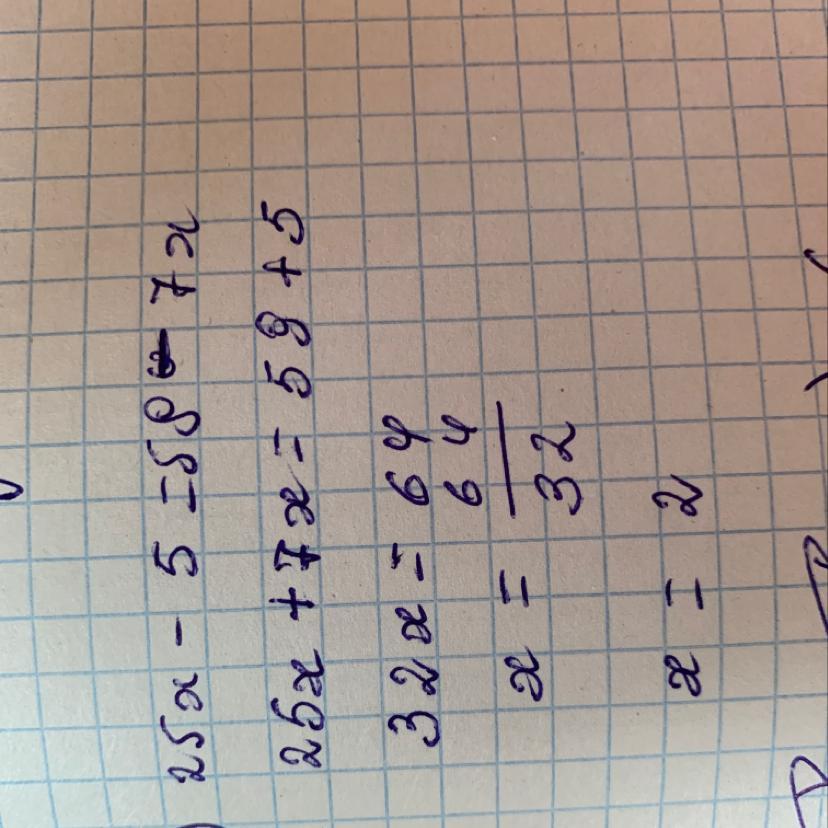 25x - 5 = 59 - 7x
25x + 7x = 59 + 5
32x = 64
x = 64/32
x = 2